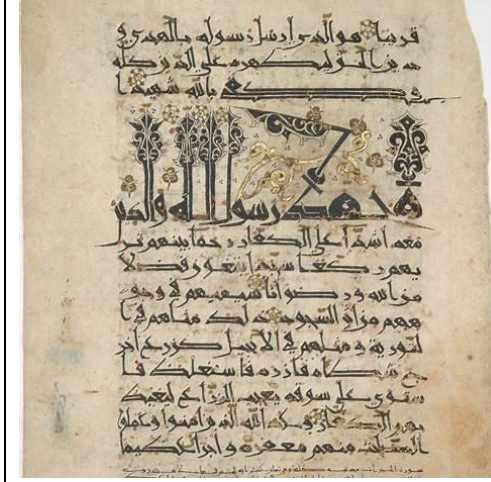 قريبا هو الذى ارسل رسوله بالهدى و
دين الحق ليظهره على الدين كله
وكفى بالله شهيدا
محمد رسول الله والذين
معه اشدا على الكفار رحما بينهم تر
يهم ركعا سجدا يبتغون فضلا
من الله ورضوانا سيميهم في وجو
ههم من اثر السجود ذلك مثلهم في ا
لتورية ومثلهم في الانجيل كزرع اخر
ج شطاه فازره فاستغلظ فا
ستوى على سوقه يعجب الزراع ليغيظ
بهم الكفار وعد الله الذين امنوا وعملوا
الصلحت منهم مغفرة واجرا عظيما
سورة الحجرات